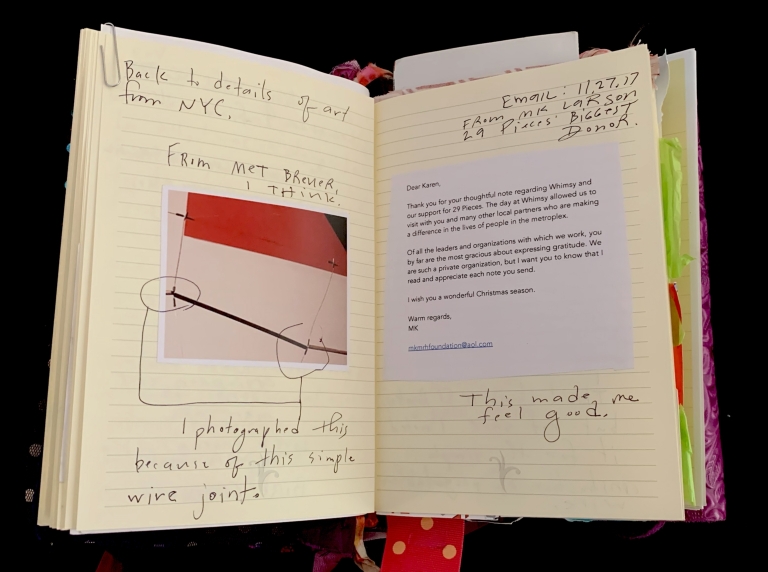 Back to details of art
from NYC.
FROM MET BREUER,
I THINK.
I photographed this
because of this simple
wire joint.
EMAIL: 11/27.17
FROM MK LARSON
29 PIECES. BIGGEST
DONOR.
Dear Karen,
Thank you for your thoughtful note regarding Whimsy and
our support for 29 Pieces. The day at Whimsy allowed us to
visit with you and many other local partners who are making
a difference in the lives of people in the metroplex.
Of all the leaders and organizations with which we work, you
by far are the most gracious about expressing gratitude. We
are such a private organization, but I want you to know that I
read and appreciate each note you send.
I wish you a wonderful Christmas season.
Warm regards,
MK
mkmrhfoundation@aol.com
This made me
feel good.